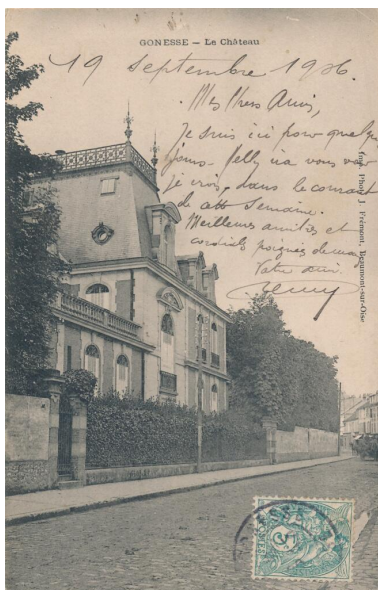 GONESSE — Le Château
19 Septembre 1906.
Mes Chers Amis,
Je suis ici pour quelques
jours - Jelly ira vous voir
je crois, dans le courant
de cette semaine.
Meilleures amitiés et
cordiale poignée de main
Votre ami
Imp. Phot. J. Frémont, Beaumont-sur-Oise
GONESSE
5